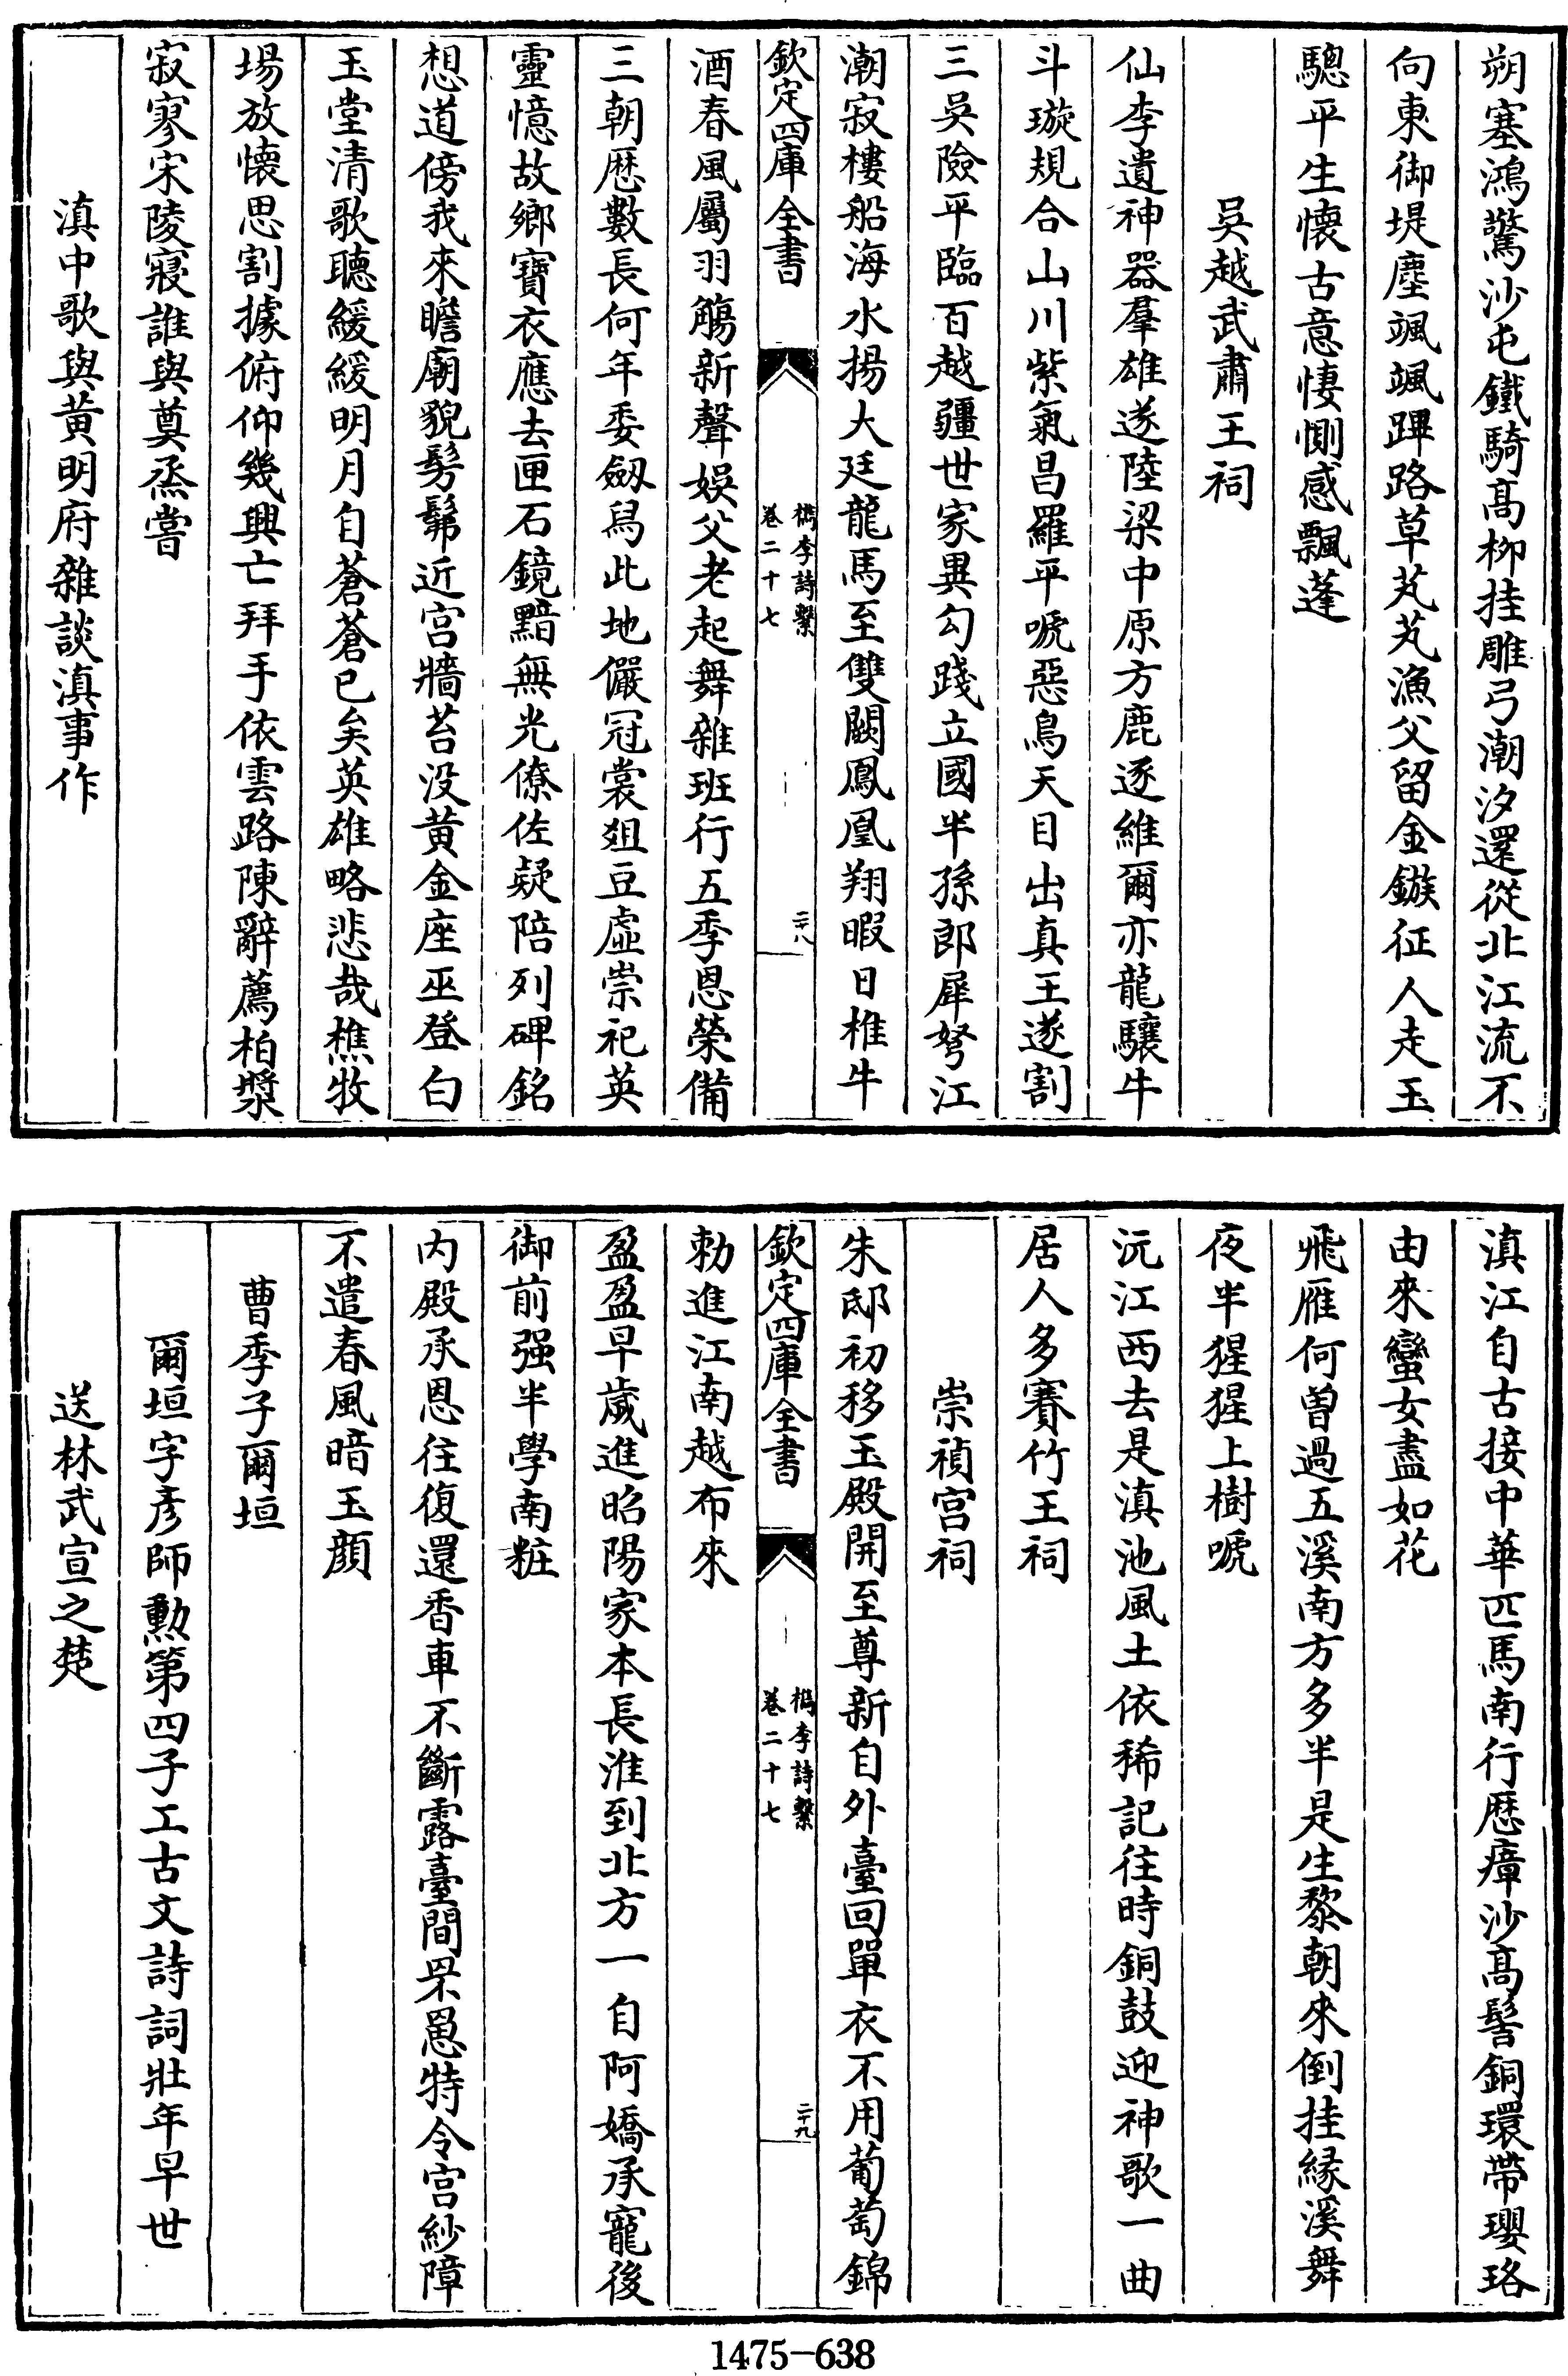 朔塞鴻驚沙屯鐵騎髙柳挂雕弓潮汐還從北江流不
向東御堤塵颯颯蹕路草芃芃漁父留金鏃征人走玉
驄平生懐古意悽惻感飄蓬
吳越武肅王祠
仙李遺神器羣雄遂陸梁中原方鹿逐維爾亦龍驤牛
斗璇規合山川紫氣昌羅平唬惡鳥天目出真王遂割
三吳險平臨百越疆世家異勾踐立國半孫郎犀弩江
潮寂樓船海水揚大廷龍馬至雙闕鳳凰翔暇日椎牛
欽定四庫全書
檇李詩繫
卷二十七
二十八
酒春風屬羽觴新聲娛父老起舞雜班行五季恩榮備
三朝歴數長何年委劔舄此地儼冠裳俎豆虛崇祀英
靈憶故鄉寶衣應去匣石鏡黯無光僚佐疑陪列碑銘
想道傍我來瞻廟貌髣髴近宮牆苔没黄金座巫登白
玉堂清歌聽緩緩明月自蒼蒼已矣英雄略悲哉樵牧
場放懐思割據俯仰幾興亡拜手依雲路陳辭薦柏漿
寂寥宋陵寢誰與奠烝嘗
滇中歌與黄明府雜談滇事作
滇江自古接中華匹馬南行歴瘴沙髙髻銅環帶瓔珞
由來蠻女盡如花
飛雁何曽過五溪南方多半是生黎朝來倒挂縁溪舞
夜半猩猩上樹唬
沅江西去是滇池風土依稀記往時銅鼓迎神歌一曲
居人多賽竹王祠
崇禎宮祠
朱邸初移玉殿開至尊新自外臺回單衣不用葡萄錦
欽定四庫全書
檇李詩繫
卷二十七
二十九
勅進江南越布來
盈盈早歲進昭陽家本長淮到北方一自阿嬌承寵後
御前强半學南粧
内殿承恩往復還香車不斷露臺間罘罳特令宮紗障
不遣春風暗玉顔
曹季子爾垣
爾垣字彦師勲第四子工古文詩詞壯年早世
送林武宣之楚
1475-638